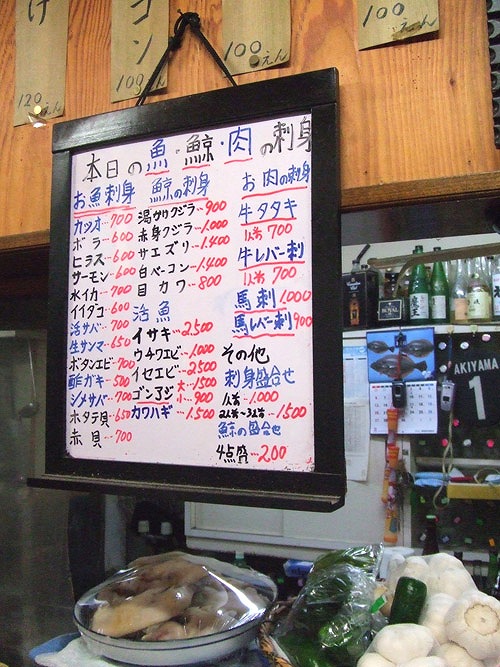 け
120えん
コン
100えん
100えん
100えん
本日の魚・鯨・肉の刺身
お魚刺身
カツオ…700
ボラ…600
ヒラス…600
サーモン…600
水イカ…700
イイダコ…600
活サバ…700
生サンマ…650
ボタンエビ…700
酢ガキ…500
シメサバ…700
ホタテ貝…650
赤貝…700
鯨の刺身
湯かけクジラ…900
赤身クジラ…1.000
サエズリ…1.400
白ベーコン…1.400
目カワ…800
活魚
イサキ…2.500
ウチワエビ…1.000
イセエビ…2500
ゴンアジ 大…1500
小…900
カワハギ…1.500
お肉の刺身
牛タタキ
1人前 700
牛レバー刺
1人前 700
馬刺 1000
馬レバー刺 900
その他
刺身盛合せ
1人前…1.000
2人前〜3人前…1500
鯨の盛合せ
4点盛…2.00
AKIYAMA
1